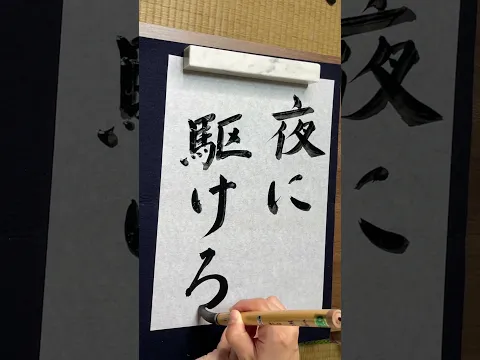 夜に
駆けろ